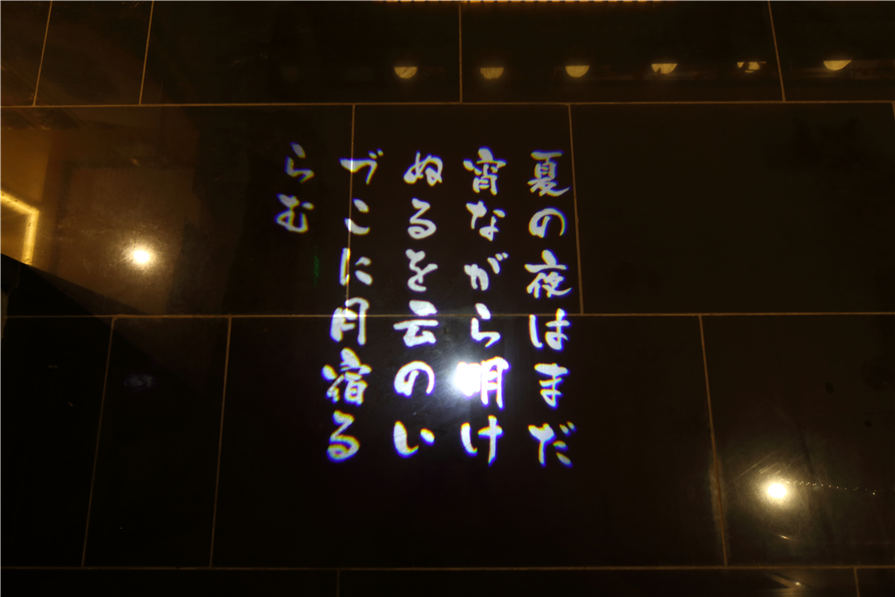 夏の夜はまだ
宵ながら明け
ぬるを云のい
づこに月宿る
らむ